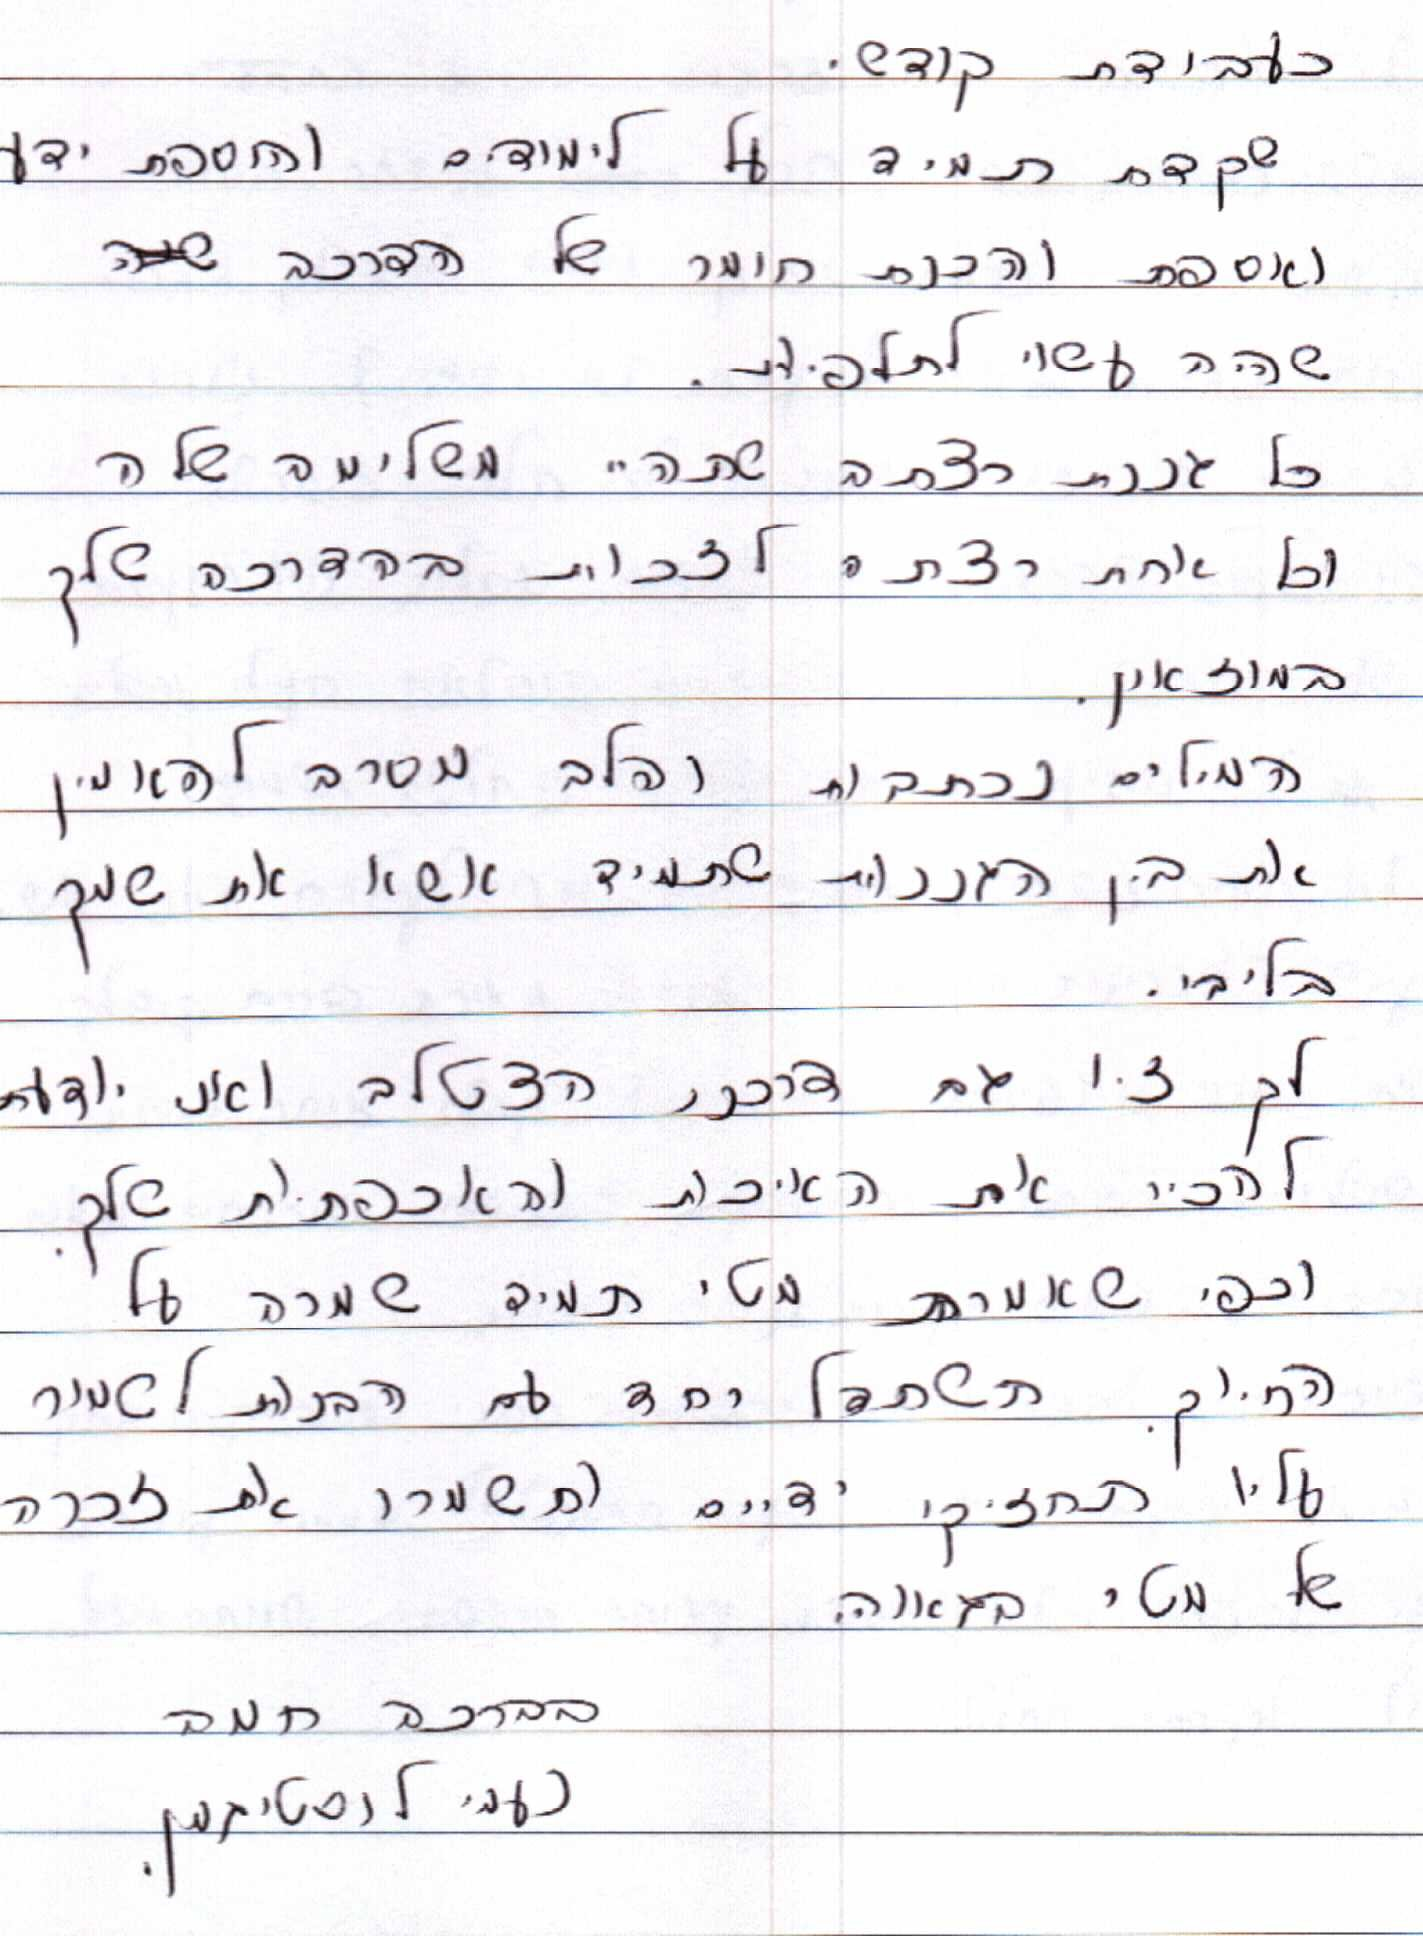 כעבודת קודש.
שקדת תמיד על לימודים והוספת ידע
ואספת והכנת חומר של הדרכה
שהיה עשוי לתלפיות.
כל גננת רצתה שתהיי משלימה שלה
וכל אחת רצתה לזכות בהדרכה שלך
במוזאון.
המילים נכתבות והלב מסרב להאמין
את בין הגננות שתמיד אשא את שמך
בליבי.
לך זיו גם דרכנו הצטלבה ואני יודעת
להכיר את האיכות והאכפתיות שלך.
וכפי שאמרת מטי תמיד שמרה על
החיוך. תשתדל יחד עם הבנות לשמור
עליו תחזיקו ידיים ותשמרו את זכרה
של מטי בגאווה.
בברכה חמה
נעמי לוסטיגמן.